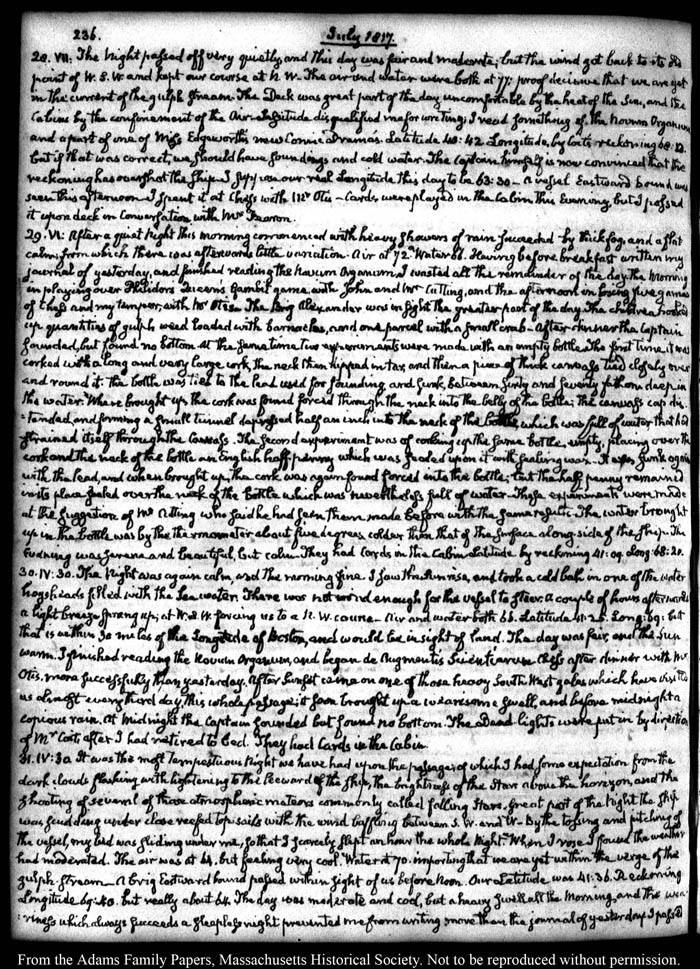 236.
July 1817.
28. VII. The Night passed off very quietly, and this day was fair and moderate; but the wind got back to its old
point of W. S. W. and kept our course at N W. The air and water were both at 77: proof decisive that we are yet
in the current of the gulph stream. The Deck was great part of the day uncomfortable by the heat of the Sun, and the
Cabins by the confinement of the Air. Lassitude disqualified me for writing; I read something of the Novum Organum
and a part of one of Miss Edgeworth's new Comic Dramas. Latitude 40:42. Longitude, by Coit's reckoning 68:12.
but if that was correct, we should have soundings and cold water. The Captain himself is now convinced that the
reckoning has overshot the Ship. I suppose our real Longitude this day to be 63:30 — A vessel Eastward bound was
seen this afternoon. I spent it at Chess with Mr Otis — Cards were played in the Cabin this Evening, but I passed
it upon deck in Conversation with Mr
29. VI. After a quiet Night this morning commenced with heavy showers of rain succeeded by thick fog, and a flat
calm, from which there was afterwards little variation. Air at 72. Water 66. Having before breakfast written my
journal of yesterday, and finished reading the Novum Organum, I wasted all the remainder of the day. The Morning
in playing over Philidor's Queens Gambit game with John and Mr Cutting, and the afternoon in losing five games
of Chess and my temper, with Mr Otis. The Brig Alexander was in sight the greater part of the day. The children hooked
up quantities of gulph weed loaded with barnacles, and one parcel with a small crab — After dinner the Captain
sounded, but found no bottom. At the same time two experiments were made with an empty bottle. The first time, it was
corked with a long and very large cork, the neck then dipped in tar, and then a piece of thick canvass tied closely over
and round it. The bottle was tied to the lead used for sounding, and sunk, between sixty and seventy fathom deep in
the water. When brought up the cork was found forced through the neck into the belly of the bottle; the canvass cap dis
:tended, and forming a small tunnel depressed half an inch into the neck of the bottle which was full of water that had
strained itself through the Canvass. The second experiment was of corking up the same bottle, empty, placing over the
cork and the neck of the bottle an English half penny which was sealed upon it with sealing wax. It was sunk again
with the lead, and when brought up the cork was again found forced into the bottle; but the half penny remained
in its place sealed over the neck of the bottle which was nevertheless full of water. These experiments were made
at the suggestion of Mr Cutting who said he had seen them made before with the same result. The water brought
up in the bottle was by the thermometer about five degrees colder than that of the surface along side of the ship. The
Evening was serene and beautiful, but calm. They had Cards in the Cabin. Latitude by reckoning 41:09. Long: 68:20.
30. IV:30. The Night was again calm, and the morning fine. I saw the Sun rise, and took a cold bath in one of the water
hogsheads filled with the Sea water. There was not wind enough for the vessel to steer. A couple of hours afterwards
a light breeze sprang up; at W. S. W. forcing us to a N. W. course — Air and water both 66. Latitude 41:25. Long: 69: but
that is within 30 miles of the Longitude of Boston, and would be in sight of land. The day was fair, and the Sun
warm. I finished reading the Novum Organum, and began de Augmentis Scientiarum. Chess after dinner with Mr
Otis, more successfully than yesterday. After Sunset came on one of those heavy South West gales which have visited
us almost every third day, this whole passage; it soon brought up a wearisome swell, and before midnight a
copious rain. At midnight the Captain sounded but found no bottom. The Dead lights were put in by direction
of Mr Coit, after I had retired to bed. They had Cards in the Cabin.
31. IV:30. It was the most tempestuous Night we have had upon the passage, of which I had some expectation from the
dark clouds flashing with lightening to the Leeward of the ship, the brightness of the Stars above the horizon, and the
shooting of several of those atmospheric meteors commonly called falling Stars. Great part of the Night the Ship
was scudding under close reefed top-sails with the wind baffling between S. W. and W. By the tossing and pitching of
the vessel, my bed was sliding under me, so that I scarcely slept an hour the whole Night. When I rose I found the weather
had moderated. The air was at 64. but feeling very cool. Water at 70. importing that we are yet within the verge of the
gulph stream — A brig Eastward bound passed within sight of us before Noon. Our Latitude was 41:36. Reckoning
Longitude 69:40. but really about 64. The day was moderate and cool, but a heavy swell all the Morning, and the wea
:riness which always succeeds a sleepless night prevented me from writing more than the journal of yesterday. I passed
From the Adams Family Papers, Massachusetts Historical Society. Not to be reproduced without permission.